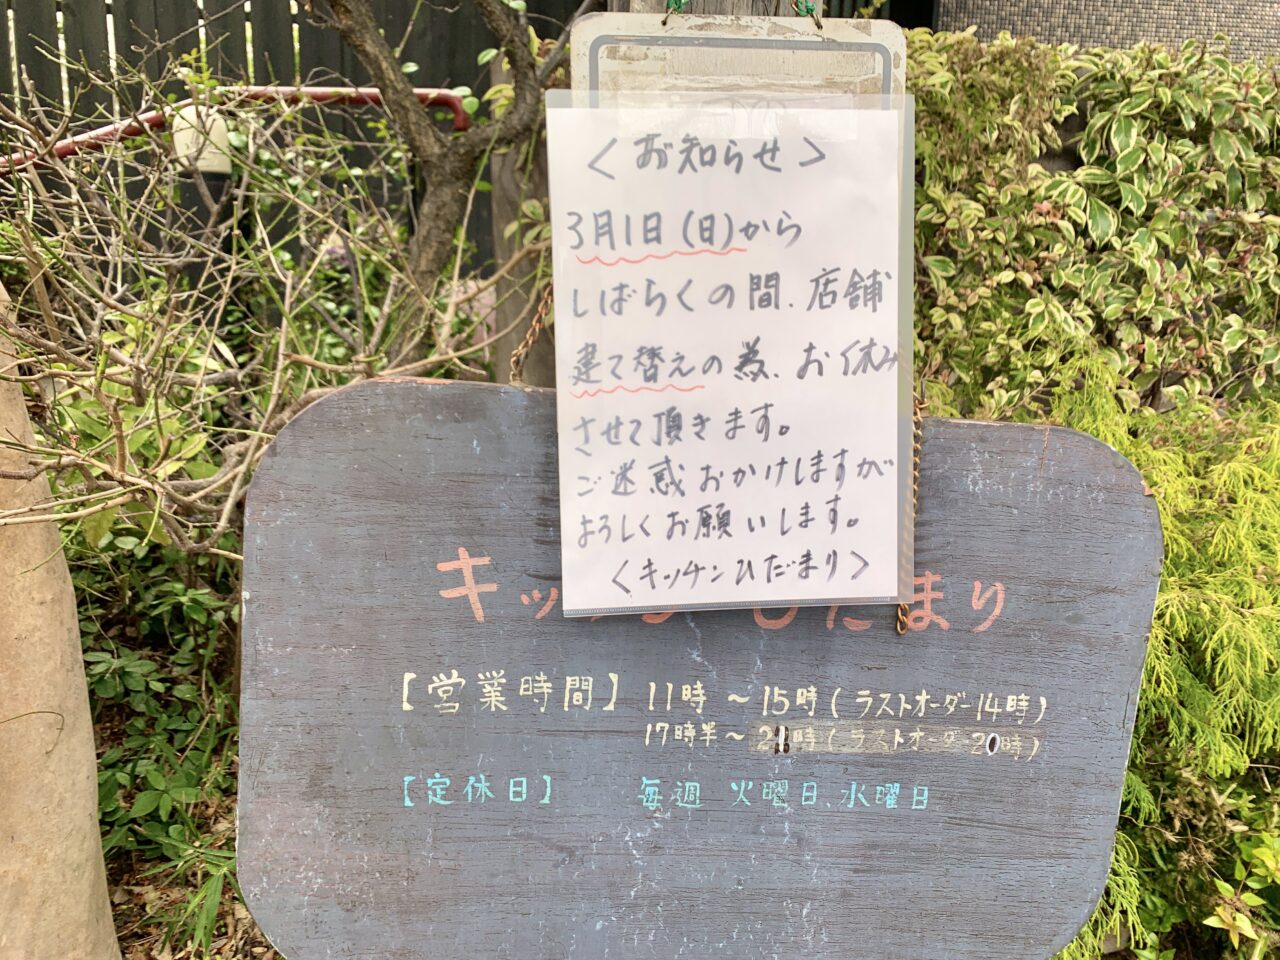 〈お知らせ〉
3月1日(日)から
しばらくの間、店舗
建て替えの為、お休み
させて頂きます。
ご迷惑おかけしますが
よろしくお願いします。
〈キッチンひだまり〉
キッチン ひだまり
【営業時間】 11時 〜 15時 (ラストオーダー14時)
17時半〜 21時 (ラストオーダー 20時)
【定休日】 毎週 火曜日、水曜日